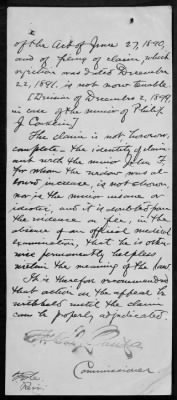 of the Act of June 27, 1890,
and of filing of claim, which
opinion was dated December
22, 1891, is not now tenable
[Decision of December 2, 1899,
in case of the minor of Philip
J. Conklin]
The claim is not however,
complete - the identity of claim-
ant with the minor John F.
for whom the widow was al-
lowed increase, is not shown
nor is the minor insane or
idiotic, and it is doubted from
the evidence on file, in the
absence of an official medical
examination, that he is other-
wise permanently helpless
within the meaning of the law.
It is therefore recommended
that action on the appeal be
withheld until the claim
can be properly adjudicated.
Commissioner.